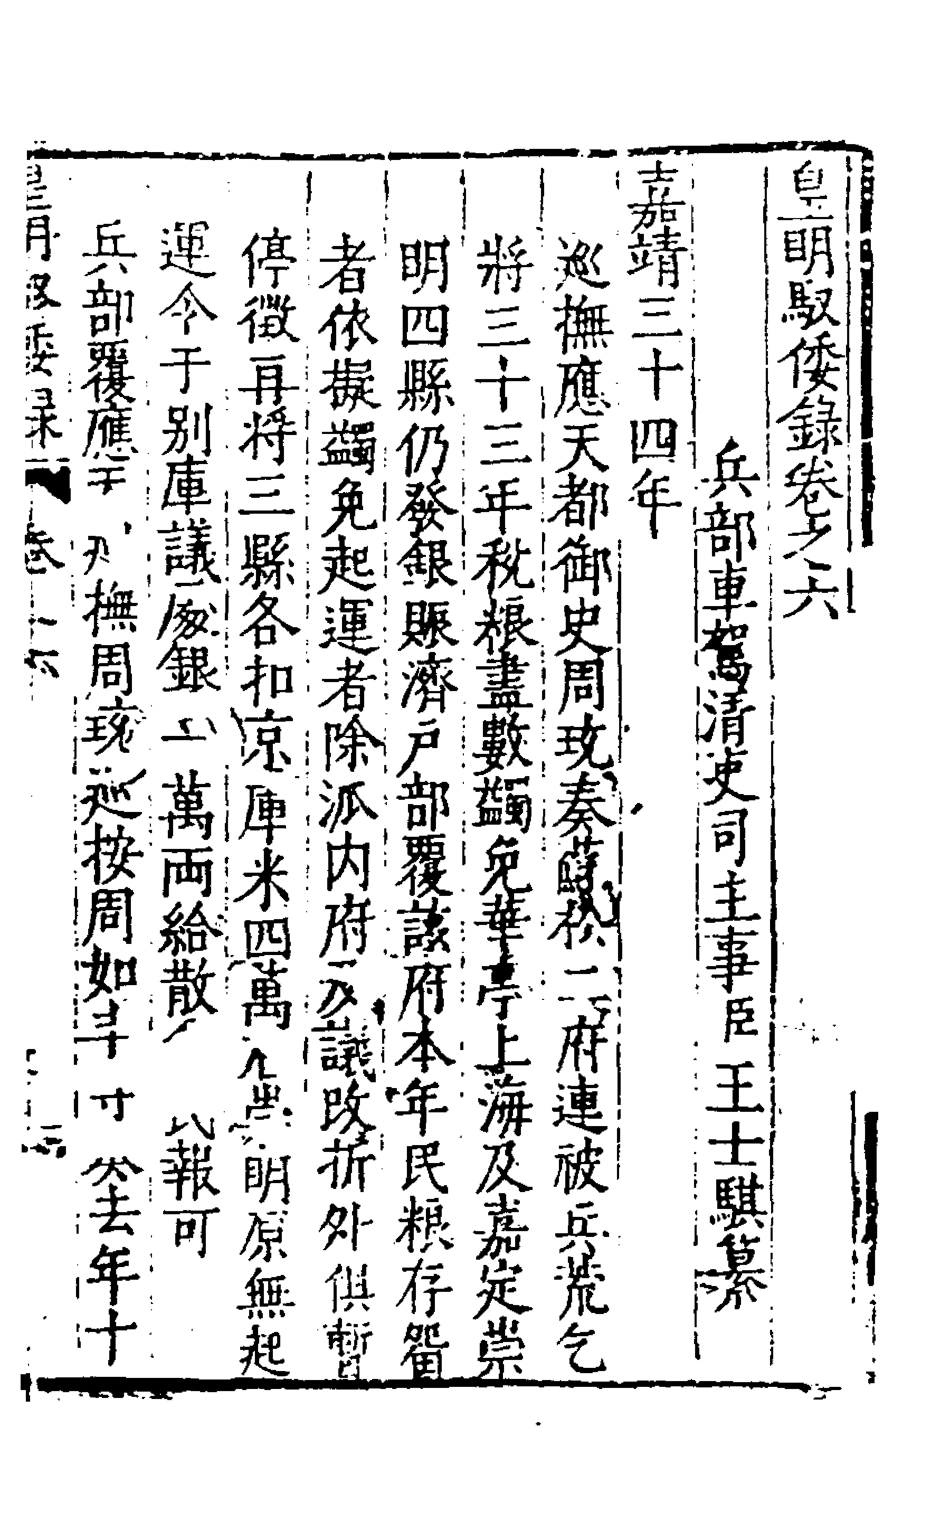 皇明馭倭錄卷之六
兵部車駕清吏司主事臣王士騏纂
嘉靖三十四年
巡撫應天都御史周珫奏蘇松二府連被兵荒乞
將三十三年稅粮盡數蠲免華亭上海及嘉定崇
明四縣仍發銀賑濟户部覆議府本年民粮存留
者依擬蠲免起運者除派内府及議改折外俱暫
停徵再將三縣各扣京庫米四萬崇明原無起
運令于别庫議處銀二萬兩給散報可
兵部覆應天撫周珫巡按周如斗去年十
皇明馭倭錄 卷之六